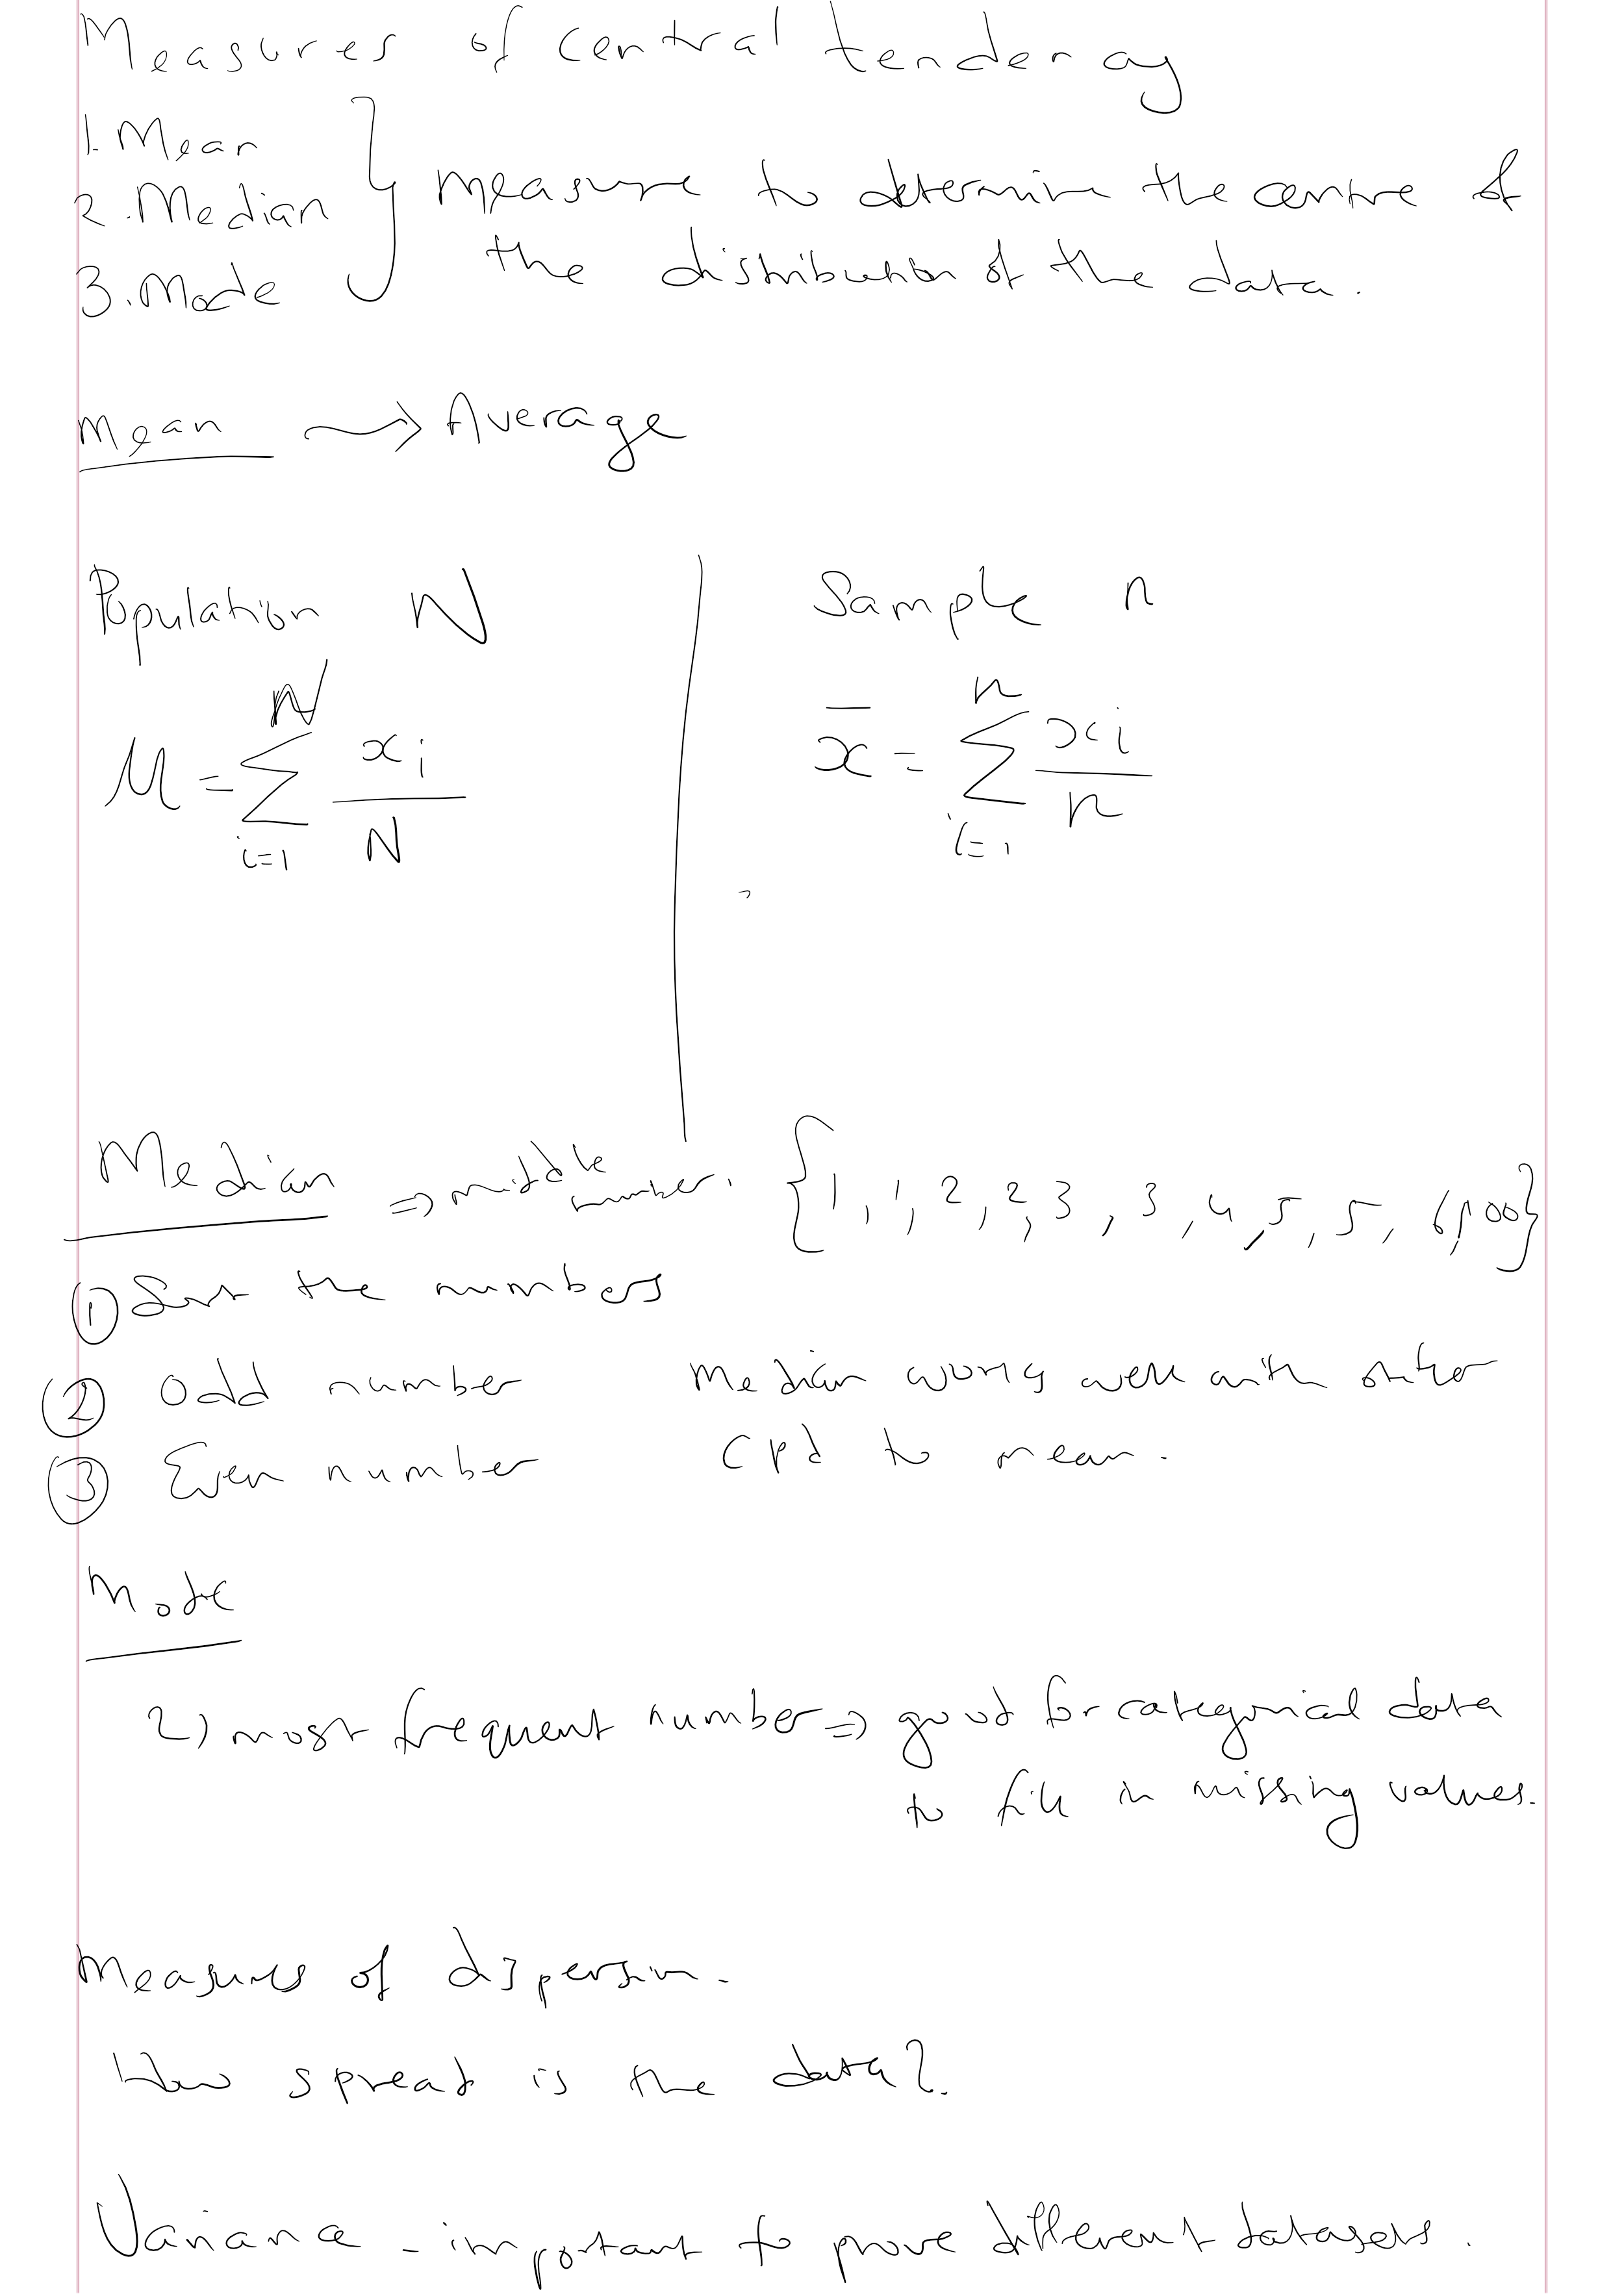 Measures of central tendency
1. Mean
2. Median } measure to determine the centre of
3. Mode the distribution of the data.
Mean → Average
Population N
μ = Σ xi / N
N
i=1
Sample n
x̄ = Σ xi / n
n
i=1
Median ⇒ middle number. {1, 1, 2, 2, 3, 3, 4, 5, 5, 6, 100}
① Sort the numbers
② Odd number
③ Even number
Median works well with outlier
cpd to mean.
Mode
2) most frequent number ⇒ good for categorical data
to fill in missing values.
Measures of dispersion.
How spread is the data?
Variance - important to prove different datasets.